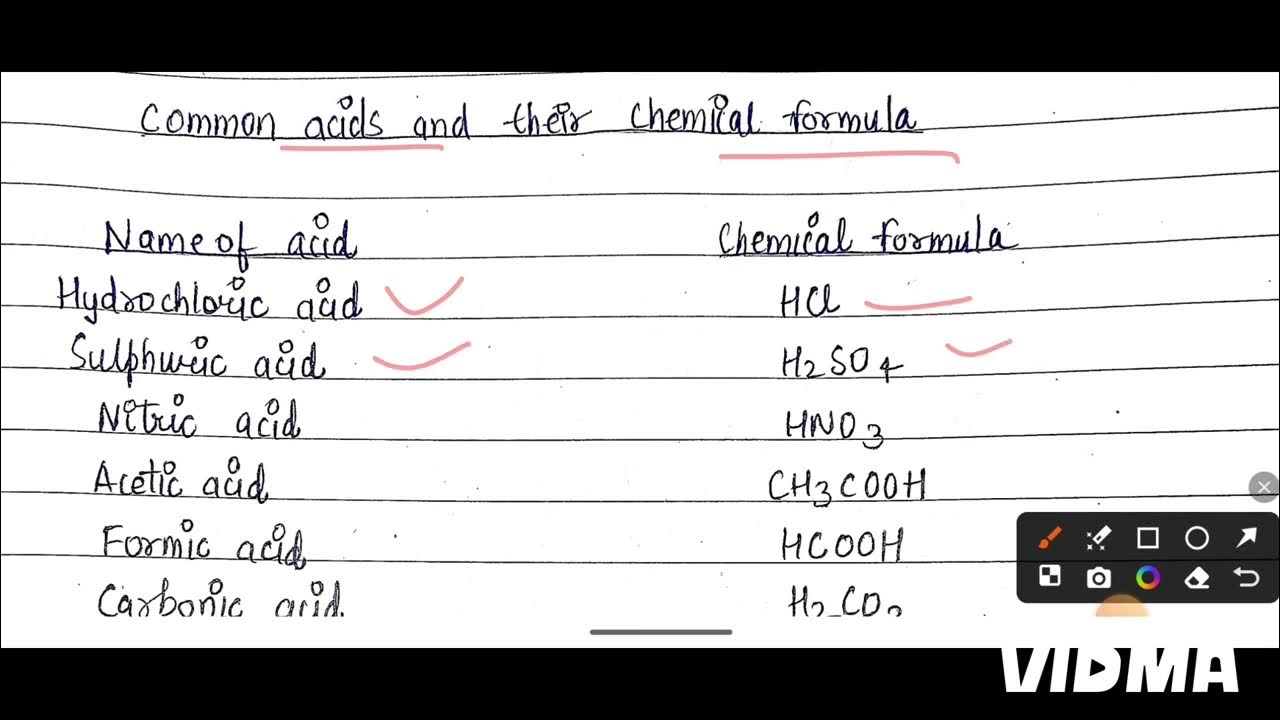 Common acids and their chemical formula
Name of acid Chemical formula
Hydrochloric acid HCl
Sulphuric acid H2SO4
Nitric acid HNO3
Acetic acid CH3COOH
Formic acid HCOOH
Carbonic acid H2CO3
VIDMA